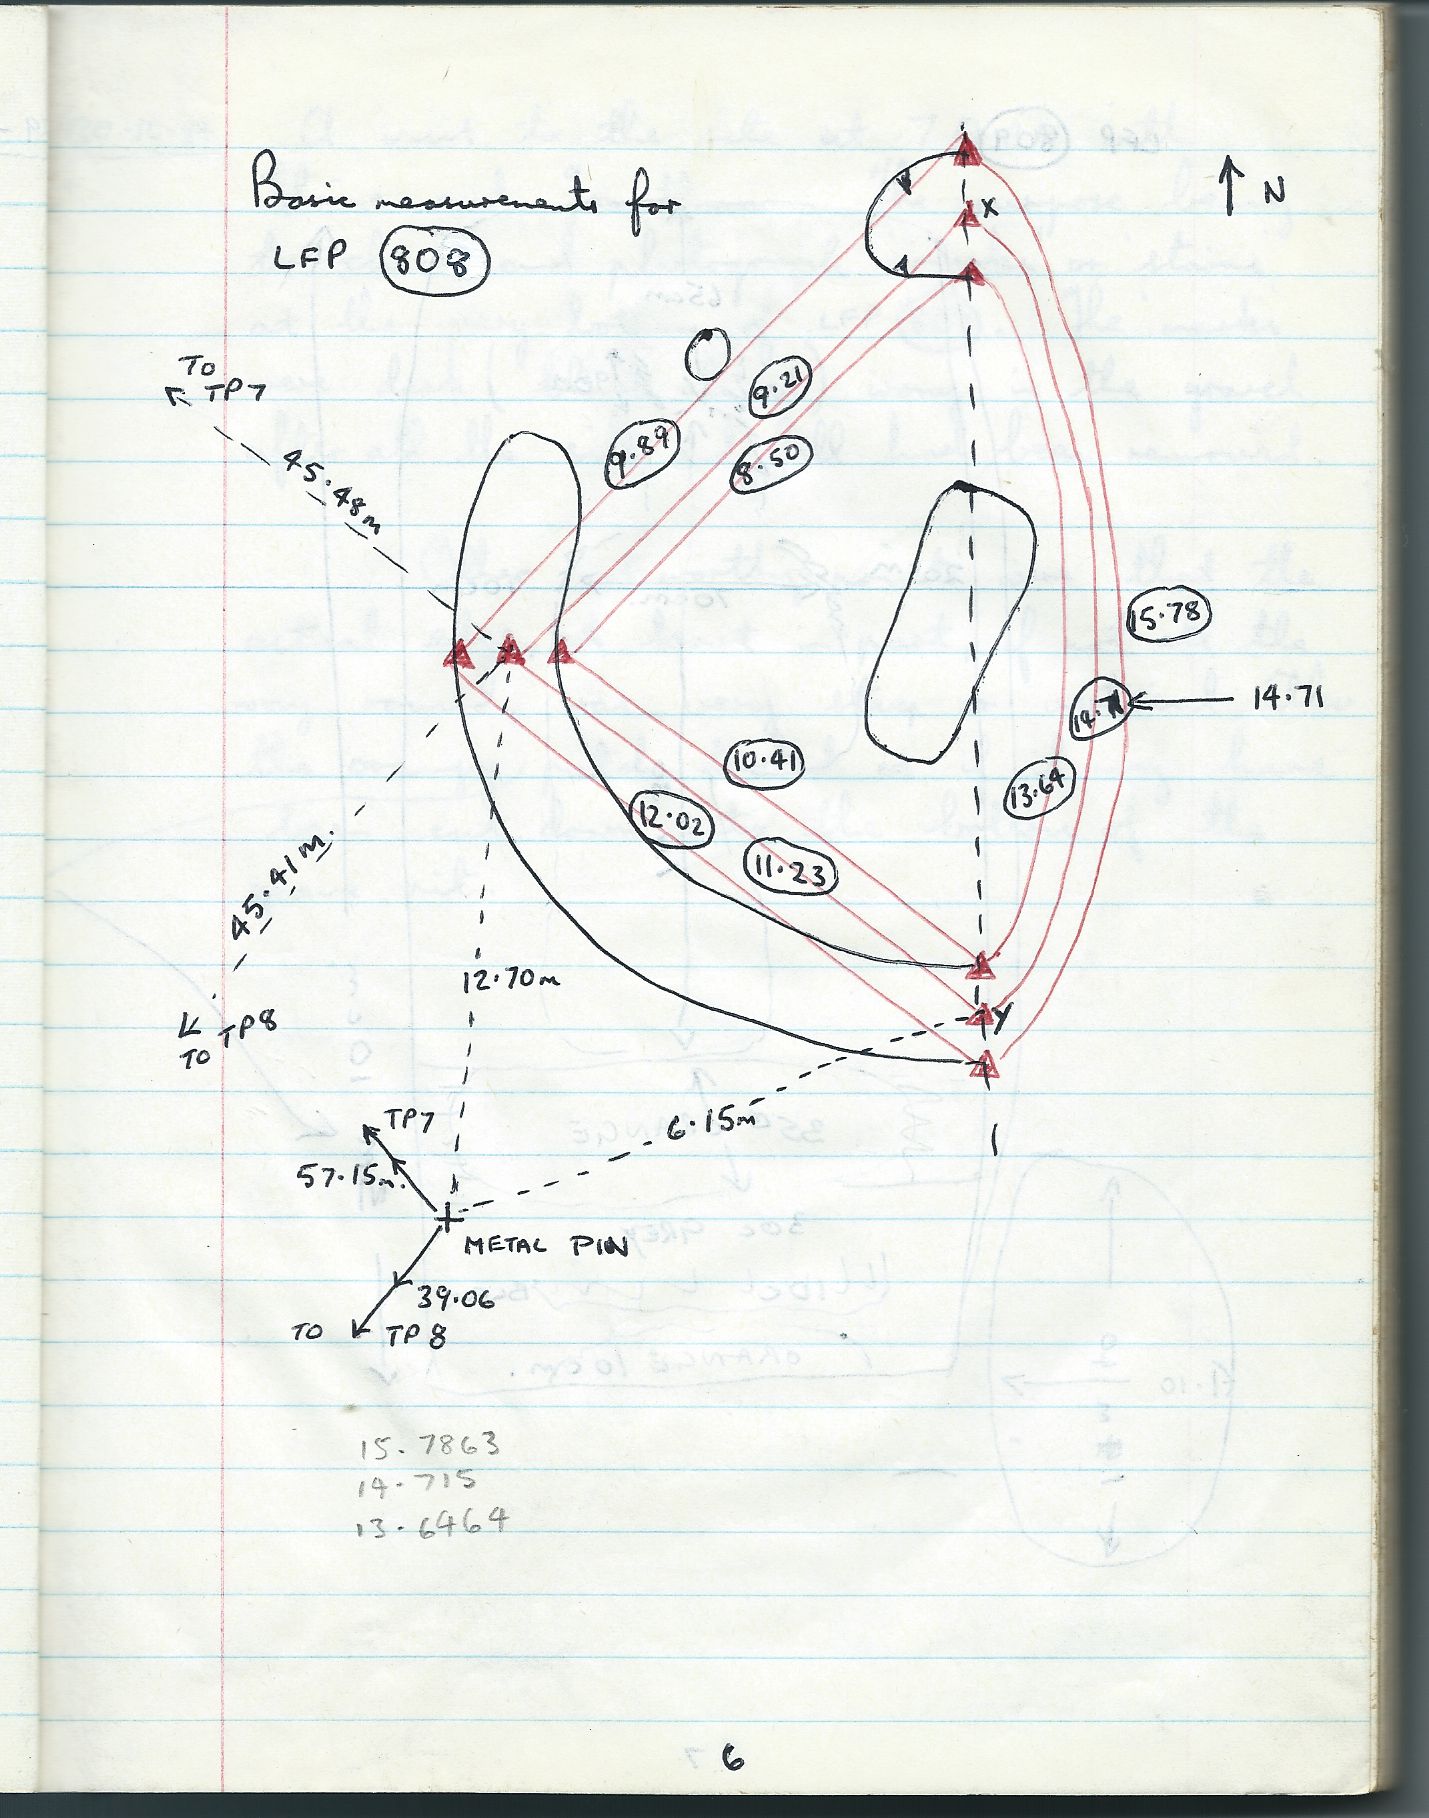 Basic measurements for
LFP 808
N
X
TO
TP7
45.48m
9.21
9.89
8.50
15.78
14.71
14.71
13.64
10.41
12.02
11.23
45.41m.
12.70m
Y
TP8
TO
6.15m
TP7
57.15m.
METAL PIN
39.06
TO TP8
15.7863
14.715
13.6464
6